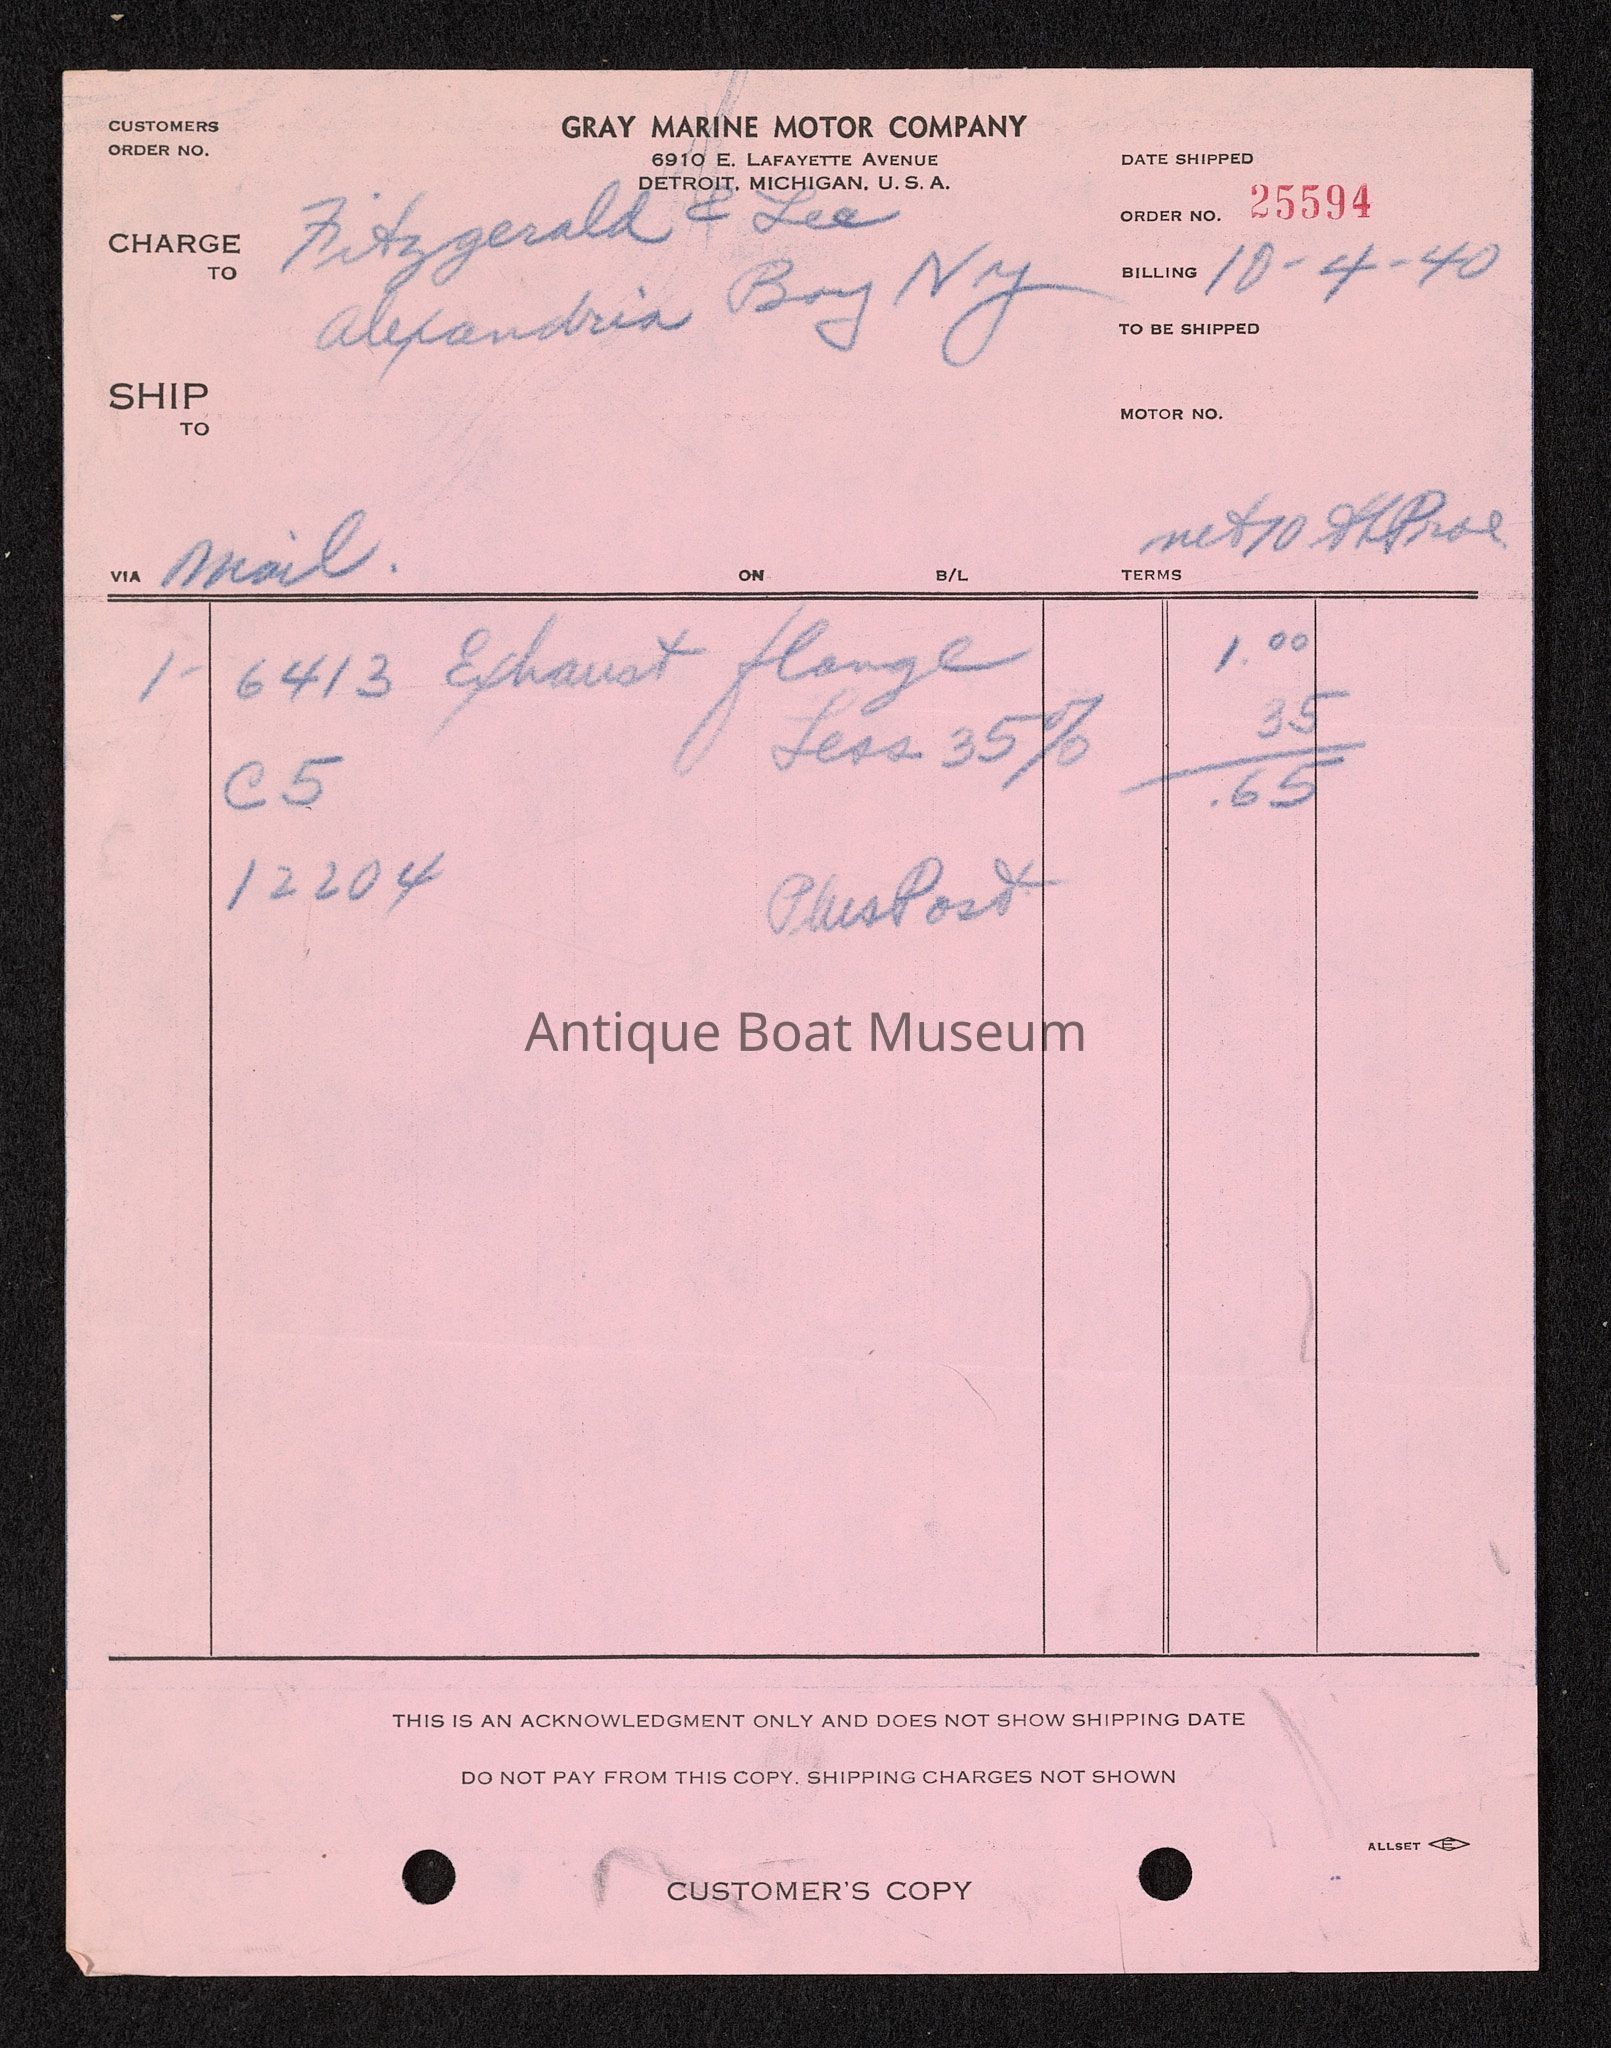 CUSTOMERS
ORDER NO.
GRAY MARINE MOTOR COMPANY
6910 E. LAFAYETTE AVENUE
DETROIT, MICHIGAN, U. S. A.
DATE SHIPPED
ORDER NO. 25594
CHARGE TO Fitzgerald & Lee
Alexandria Bay Ny
BILLING 10-4-40
TO BE SHIPPED
SHIP TO
MOTOR NO.
VIA Mail.
ON
B/L
TERMS net 10 th Prox
1- 6413 Exhaust flange 1.00
Less 35% 35
C5 .65
12204 Plus Post
Antique Boat Museum
THIS IS AN ACKNOWLEDGMENT ONLY AND DOES NOT SHOW SHIPPING DATE
DO NOT PAY FROM THIS COPY. SHIPPING CHARGES NOT SHOWN
ALLSET E
CUSTOMER'S COPY